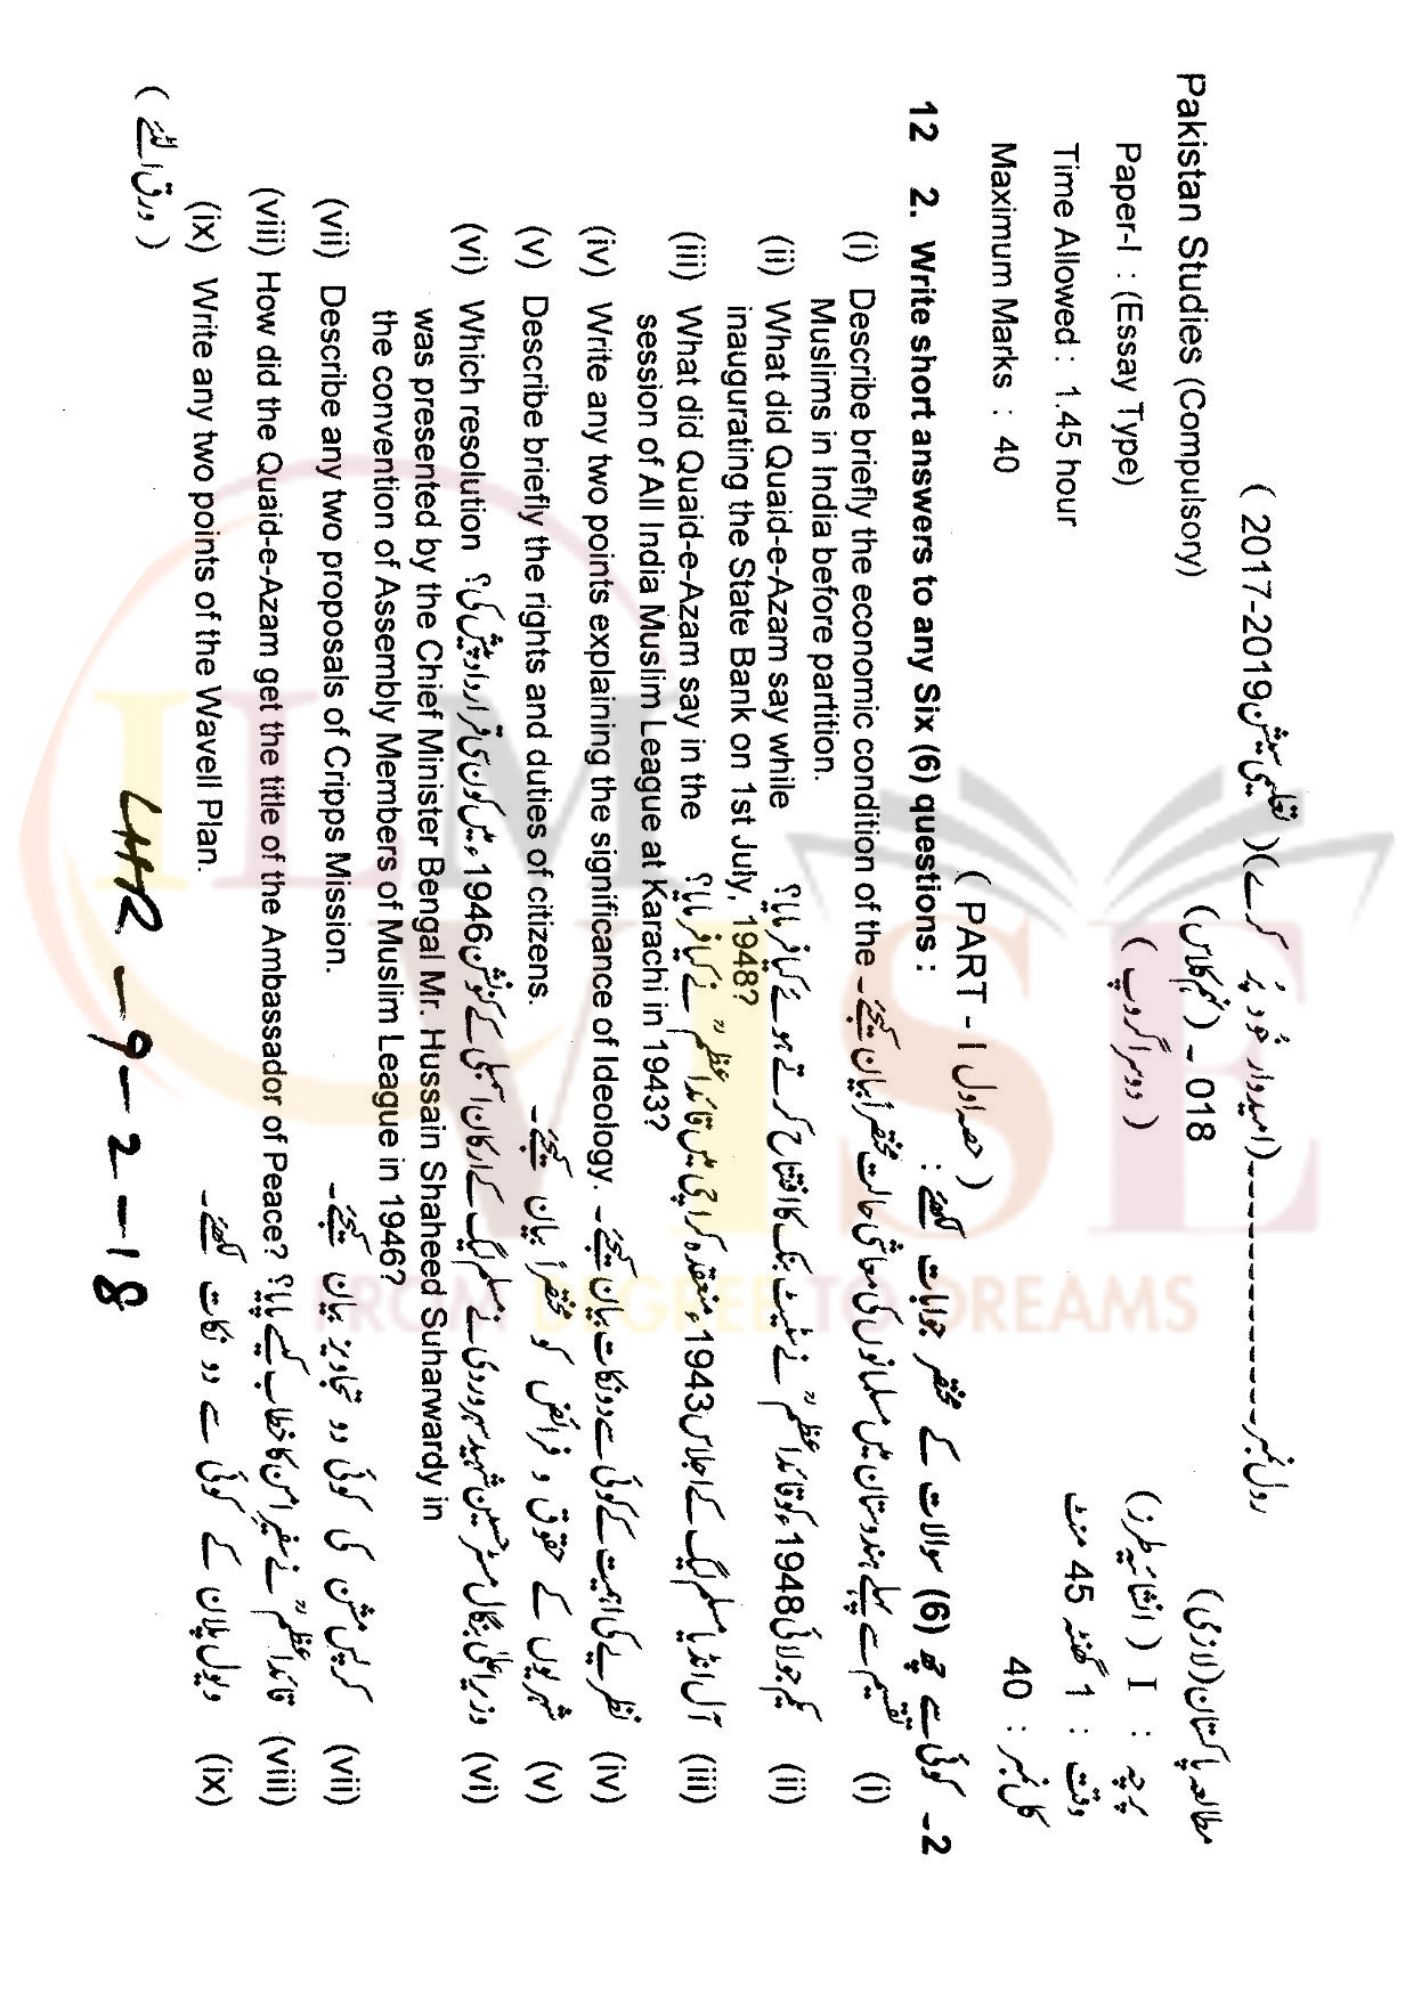 رول نمبر--------------(امیدوار خود پُر کرے)( تعلیمی سیشن 2017-2019 )
Pakistan Studies (Compulsory) 018 - (نہم کلاس) مطالعہ پاکستان (لازمی)
Paper-I : (Essay Type) ( دوسرا گروپ ) پرچہ : I ( انشائیہ طرز)
Time Allowed : 1.45 hour وقت : 1 گھنٹہ 45 منٹ
Maximum Marks : 40 کل نمبر : 40
( PART - I حصہ اول )
12 2. Write short answers to any Six (6) questions : 2- کوئی سے چھ (6) سوالات کے مختصر جوابات لکھئے :
(i) Describe briefly the economic condition of the (i) تقسیم سے پہلے ہندوستان میں مسلمانوں کی معاشی حالت مختصراً بیان کیجئے۔
Muslims in India before partition.
(ii) What did Quaid-e-Azam say while (ii) یکم جولائی 1948ء کو قائداعظمؒ نے سٹیٹ بنک کا افتتاح کرتے ہوئے کیا فرمایا؟
inaugurating the State Bank on 1st July, 1948?
(iii) What did Quaid-e-Azam say in the (iii) آل انڈیا مسلم لیگ کے اجلاس 1943ء منعقدہ کراچی میں قائداعظمؒ نے کیا فرمایا؟
session of All India Muslim League at Karachi in 1943?
(iv) Write any two points explaining the significance of Ideology. (iv) نظریے کی اہمیت کے کوئی سے دو نکات بیان کیجئے۔
(v) Describe briefly the rights and duties of citizens. (v) شہریوں کے حقوق و فرائض کو مختصراً بیان کیجئے۔
(vi) Which resolution (vi) وزیراعلیٰ بنگال مسٹر حسین شہید سہروردی نے مسلم لیگ کے ارکان اسمبلی کے کنونشن 1946ء میں کون سی قرارداد پیش کی؟
was presented by the Chief Minister Bengal Mr. Hussain Shaheed Suharwardy in
the convention of Assembly Members of Muslim League in 1946?
(vii) Describe any two proposals of Cripps Mission. (vii) کرپس مشن کی کوئی دو تجاویز بیان کیجئے۔
(viii) How did the Quaid-e-Azam get the title of the Ambassador of Peace? (viii) قائداعظمؒ نے سفیرِ امن کا خطاب کیسے پایا؟
(ix) Write any two points of the Wavell Plan. (ix) ویول پلان کے کوئی سے دو نکات لکھئے۔
( ورق الٹئے )
LHR - 9 - 2 - 18
ILM VISE
FROM DEGREE TO DREAMS